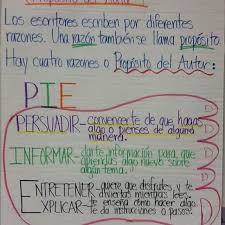 Propósito del Autor
Los escritores escriben por diferentes
razones. Una razón también se llama propósito.
Hay cuatro razones o Propósito del Autor:
PIE
PERSUADIR- convencerte de que hagas
algo o pienses de alguna
manera.
INFORMAR- darte información para que
aprendas algo nuevo sobre
algún tema.
ENTRETENER- quiere que disfrutes y te
diviertas mientras lees.
EXPLICAR- te enseña cómo hacer algo.
te da instrucciones o pasos.